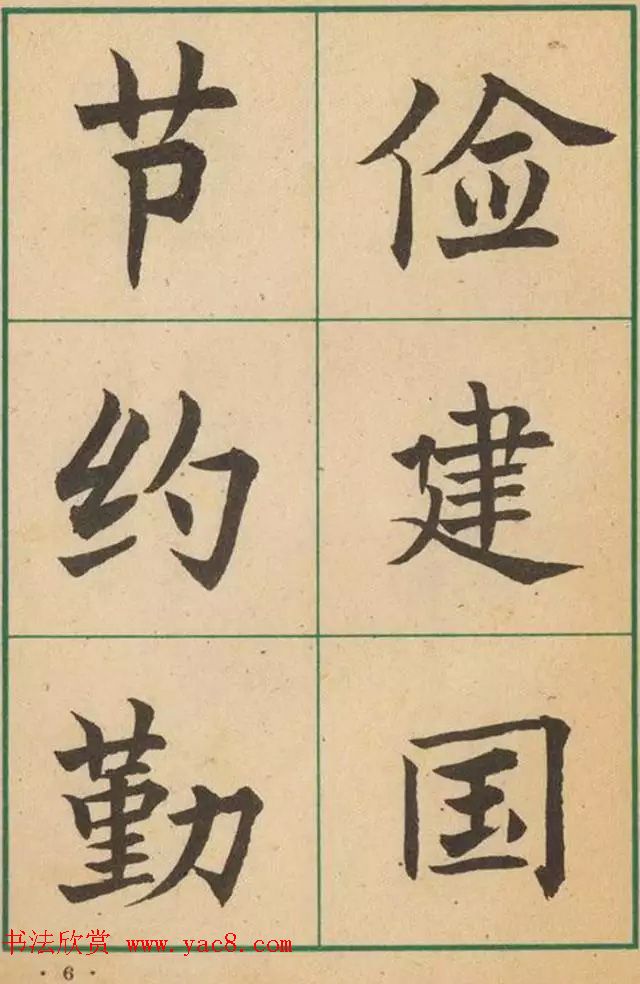 俭建国
节约勤
书法欣赏 www.yac8.com
·6·